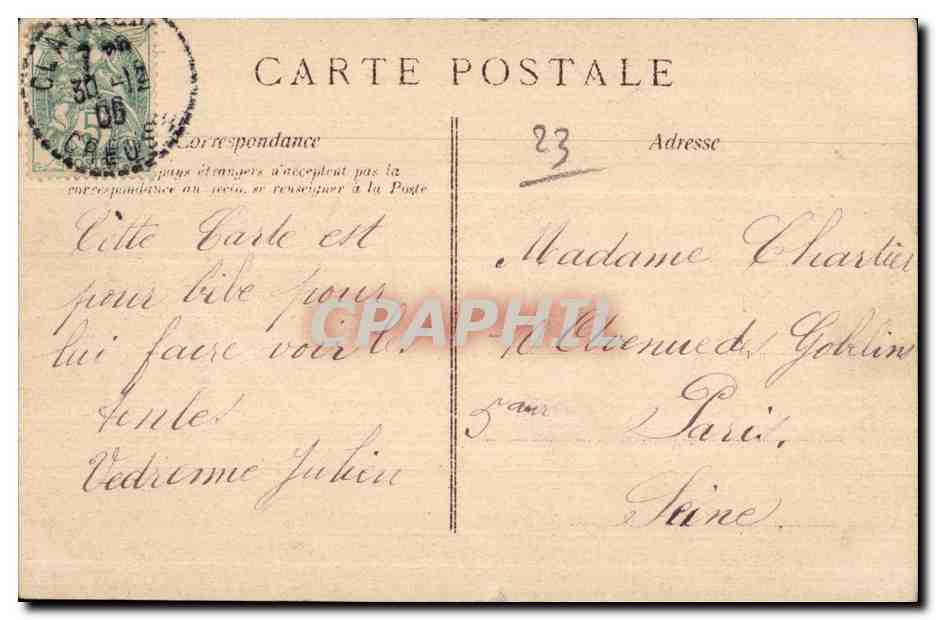 7 25
30 -12
06
CREUSE
CARTE POSTALE
Correspondance
pays étrangers n'acceptent pas la
correspondance au recto, se renseigner à la Poste
Cette Carte est
pour bibe pour
lui faire voir les
tentes
Vedrenne Julien
23
Adresse
Madame Chartier
Avenue des Gobelins
5
Paris.
Seine
CPAPHIL